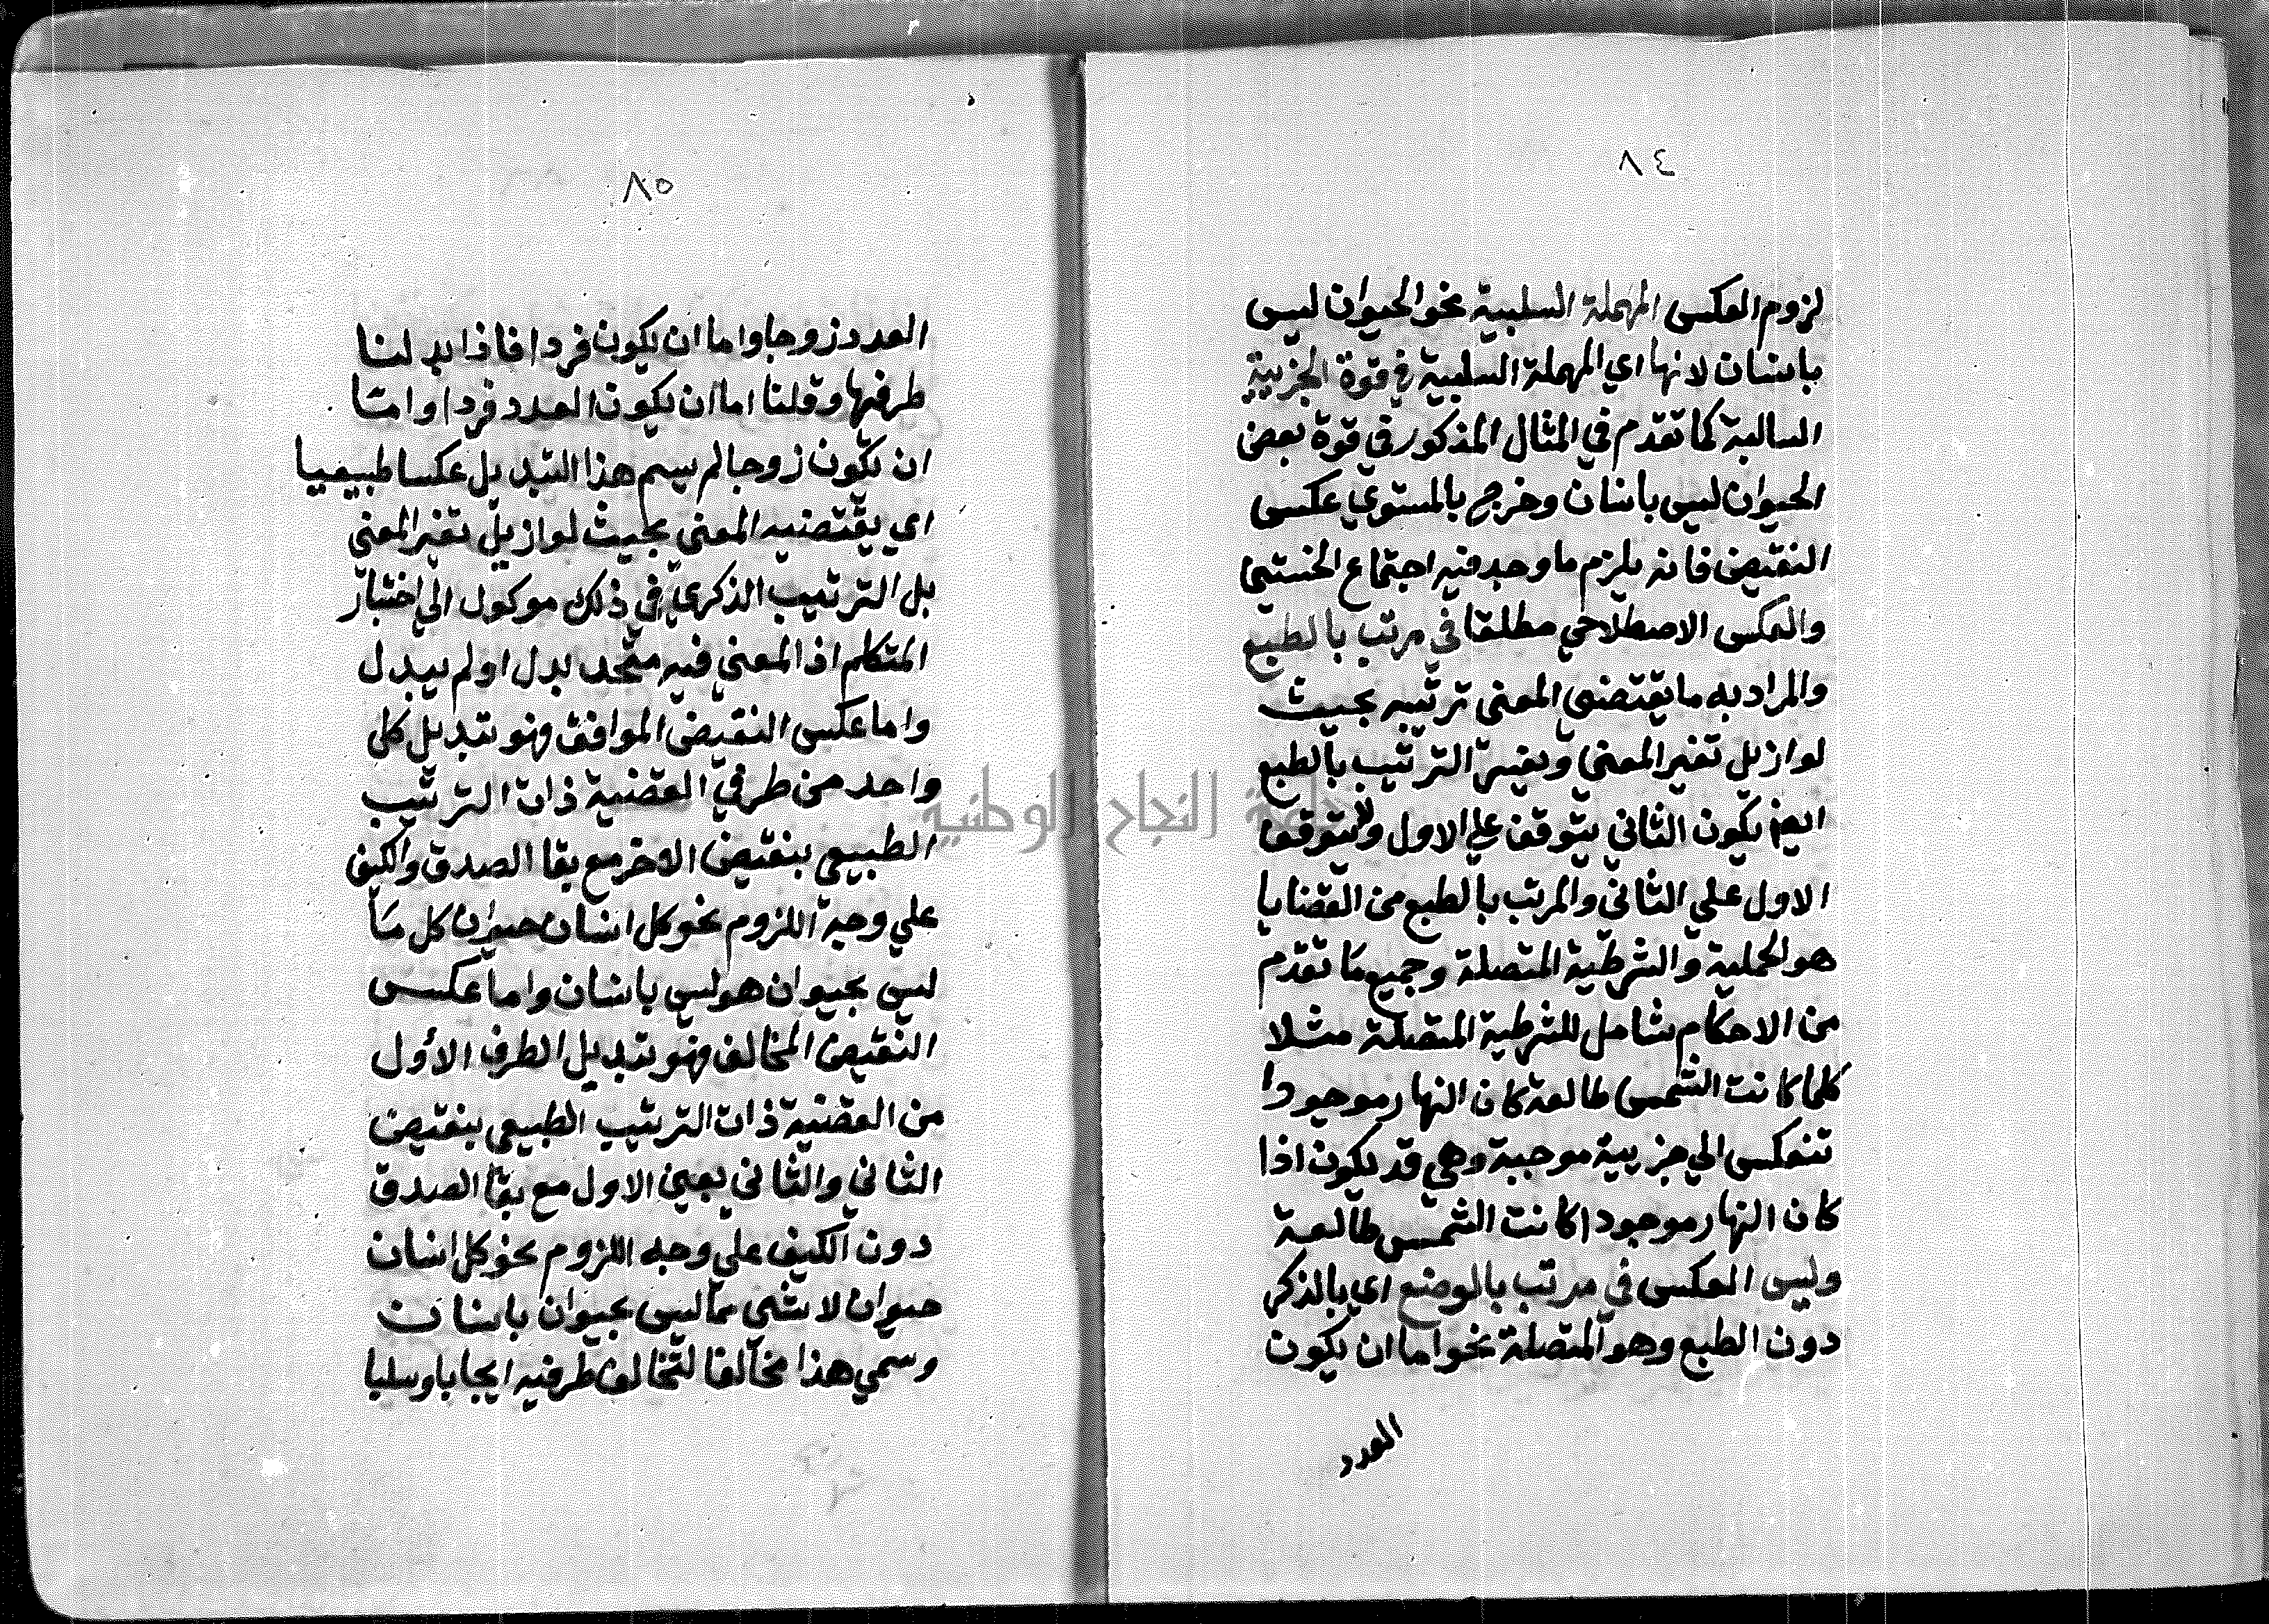 ٨٤
لزوم العكس المهملة السلبية نحو الحيوان ليس
بانسان لانها اي المهملة السلبية في قوة الجزيية
السالبة كما تقدم في المثال المذكور في قوة بعض
الحيوان ليس بانسان وخرج بالمستوي عكس
النقيض فانه يلزم ما وجد فيه اجتماع الخستين
والعكس الاصطلاحي مطلقا في مرتب بالطبع
والمراد به ما يقتضي المعني ترتيبه بحيث
لو ازيل تغير المعني وتفسير الترتيب بالطبع
ايضا يكون الثاني يتوقف علي الاول ولا يتوقف
الاول علي الثاني والمرتب بالطبع من القضايا
هو الحملية والشرطية المتصلة وجميع ما تقدم
من الاحكام شامل للشرطية المتصلة مثلا
كلما كانت الشمس طالعة كان النهار موجودا
تنعكس الي جزيية موجبة وهي قد يكون اذا
كان النهار موجودا كانت الشمس طالعة
وليس العكس في مرتب بالوضع اي بالذكر
دون الطبع وهو المتصلة نحو اما ان يكون
العدد
٨٥
العدد زوجا واما ان يكون فردا فاذا بدلنا
طرفيها وقلنا اما ان يكون العدد فردا واما
ان يكون زوجا لم يسم هذا التبديل عكسا طبيعيا
اي يقتضيه المعني بحيث لو ازيل تغير المعني
بل الترتيب الذكري في ذلك موكول الي اختيار
المتكلم اذ المعني فيه متحد بدل او لم يبدل
واما عكس النقيض الموافق فهو تبديل كل
واحد من طرفي القضية ذات الترتيب
الطبيعي بنقيض الاخر مع بقا الصدق والكيف
علي وجه اللزوم نحو كل انسان حيوان كل ما
ليس بحيوان هو ليس بانسان واما عكس
النقيض المخالف فهو تبديل الطرف الأول
من القضية ذات الترتيب الطبيعي بنقيض
الثاني والثاني بعين الاول مع بقا الصدق
دون الكيف علي وجه اللزوم نحو كل انسان
حيوان لا شي مما ليس بحيوان بانسان
وسمي هذا مخالفا لتخالف طرفيه ايجابا وسلبا
جامعة النجاح الوطنية